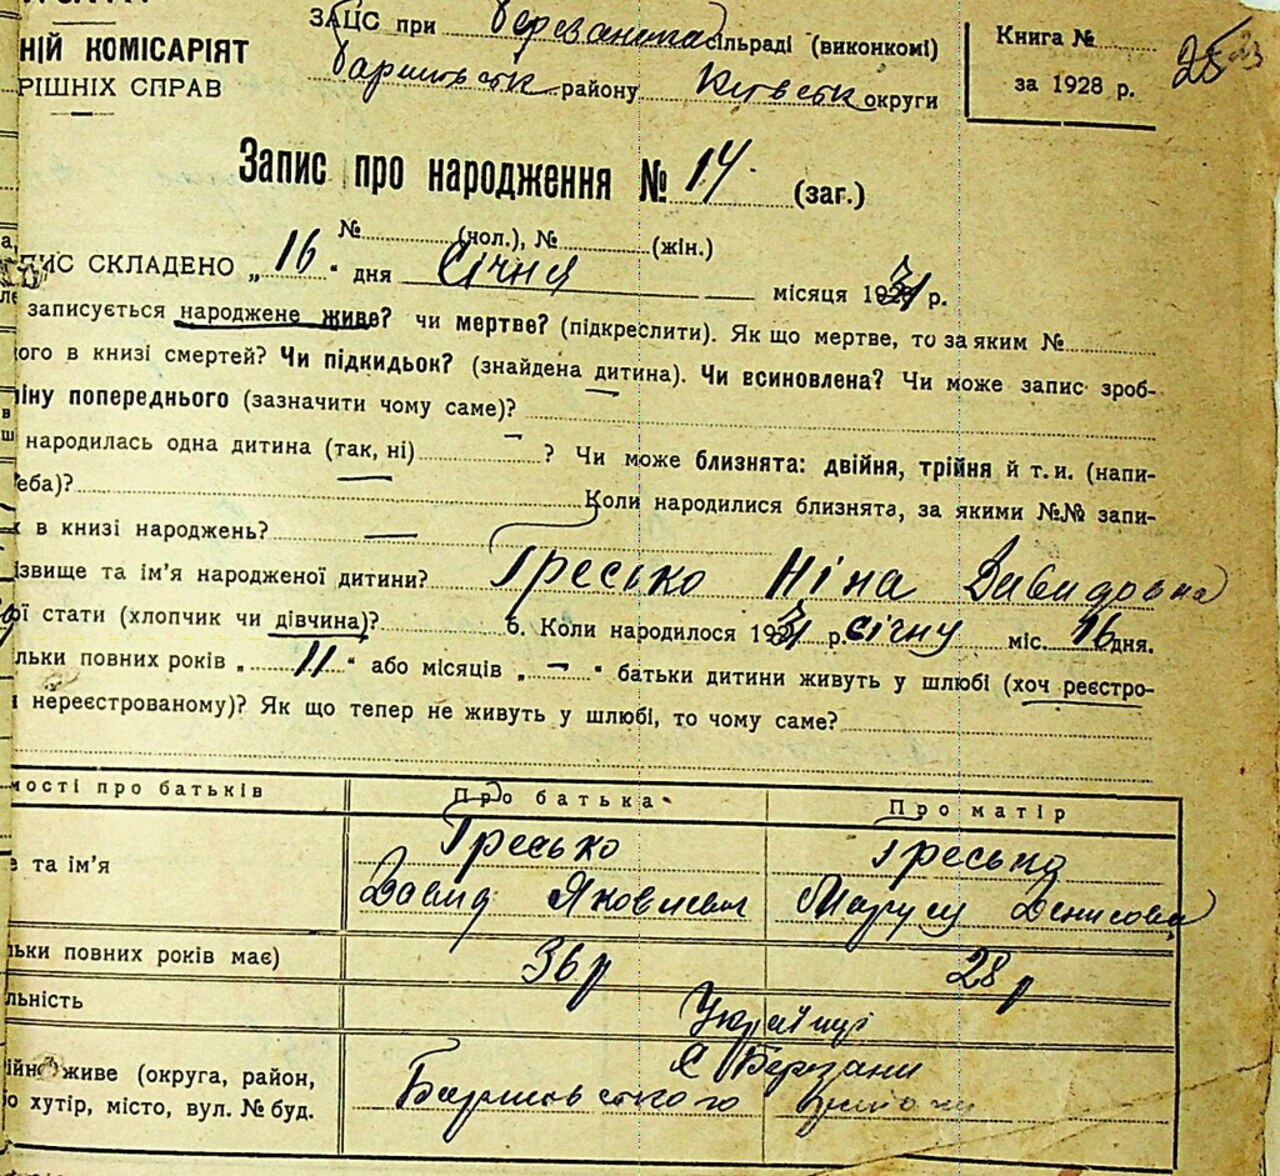 ЗАЦС при Березанська сільраді (виконкомі)
НІЙ КОМІСАРІЯТ
Книга №
25
РІШНІХ СПРАВ
Баришевськ району Київськ округи
за 1928 р.
Запис про народження № 14. (заг.)
№ (чол.), № (жін.)
ПИС СКЛАДЕНО „ 16 “ дня Січня місяця 1931 р.
записується народжене живе? чи мертве? (підкреслити). Як що мертве, то за яким №
ого в книзі смертей? Чи підкидьок? (знайдена дитина). Чи всиновлена? Чи може запис зроб-
іну попереднього (зазначити чому саме)? —
народилась одна дитина (так, ні) — ? Чи може близнята: двійня, трійня й т. и. (напи-
еба)? — Коли народилися близнята, за якими №№ запи-
х в книзі народжень? —
ізвище та ім'я народженої дитини? Гресько Ніна Давидовна
ої стати (хлопчик чи дівчина)? 6. Коли народилося 1931 р. січню міс. 16 дня.
льки повних років „ 11 “ або місяців „ — “ батьки дитини живуть у шлюбі (хоч реєстро-
и нереєстрованому)? Як що тепер не живуть у шлюбі, то чому саме?
мості про батьків Про батька Про матір
Гресько Гресько
е та ім'я
Давид Яковлевич Маруся Денисовна
льки повних років має) 36 р 28 р
льність Українці
с Березани
ійно живе (округа, район,
Баришевського району
о хутір, місто, вул. № буд.